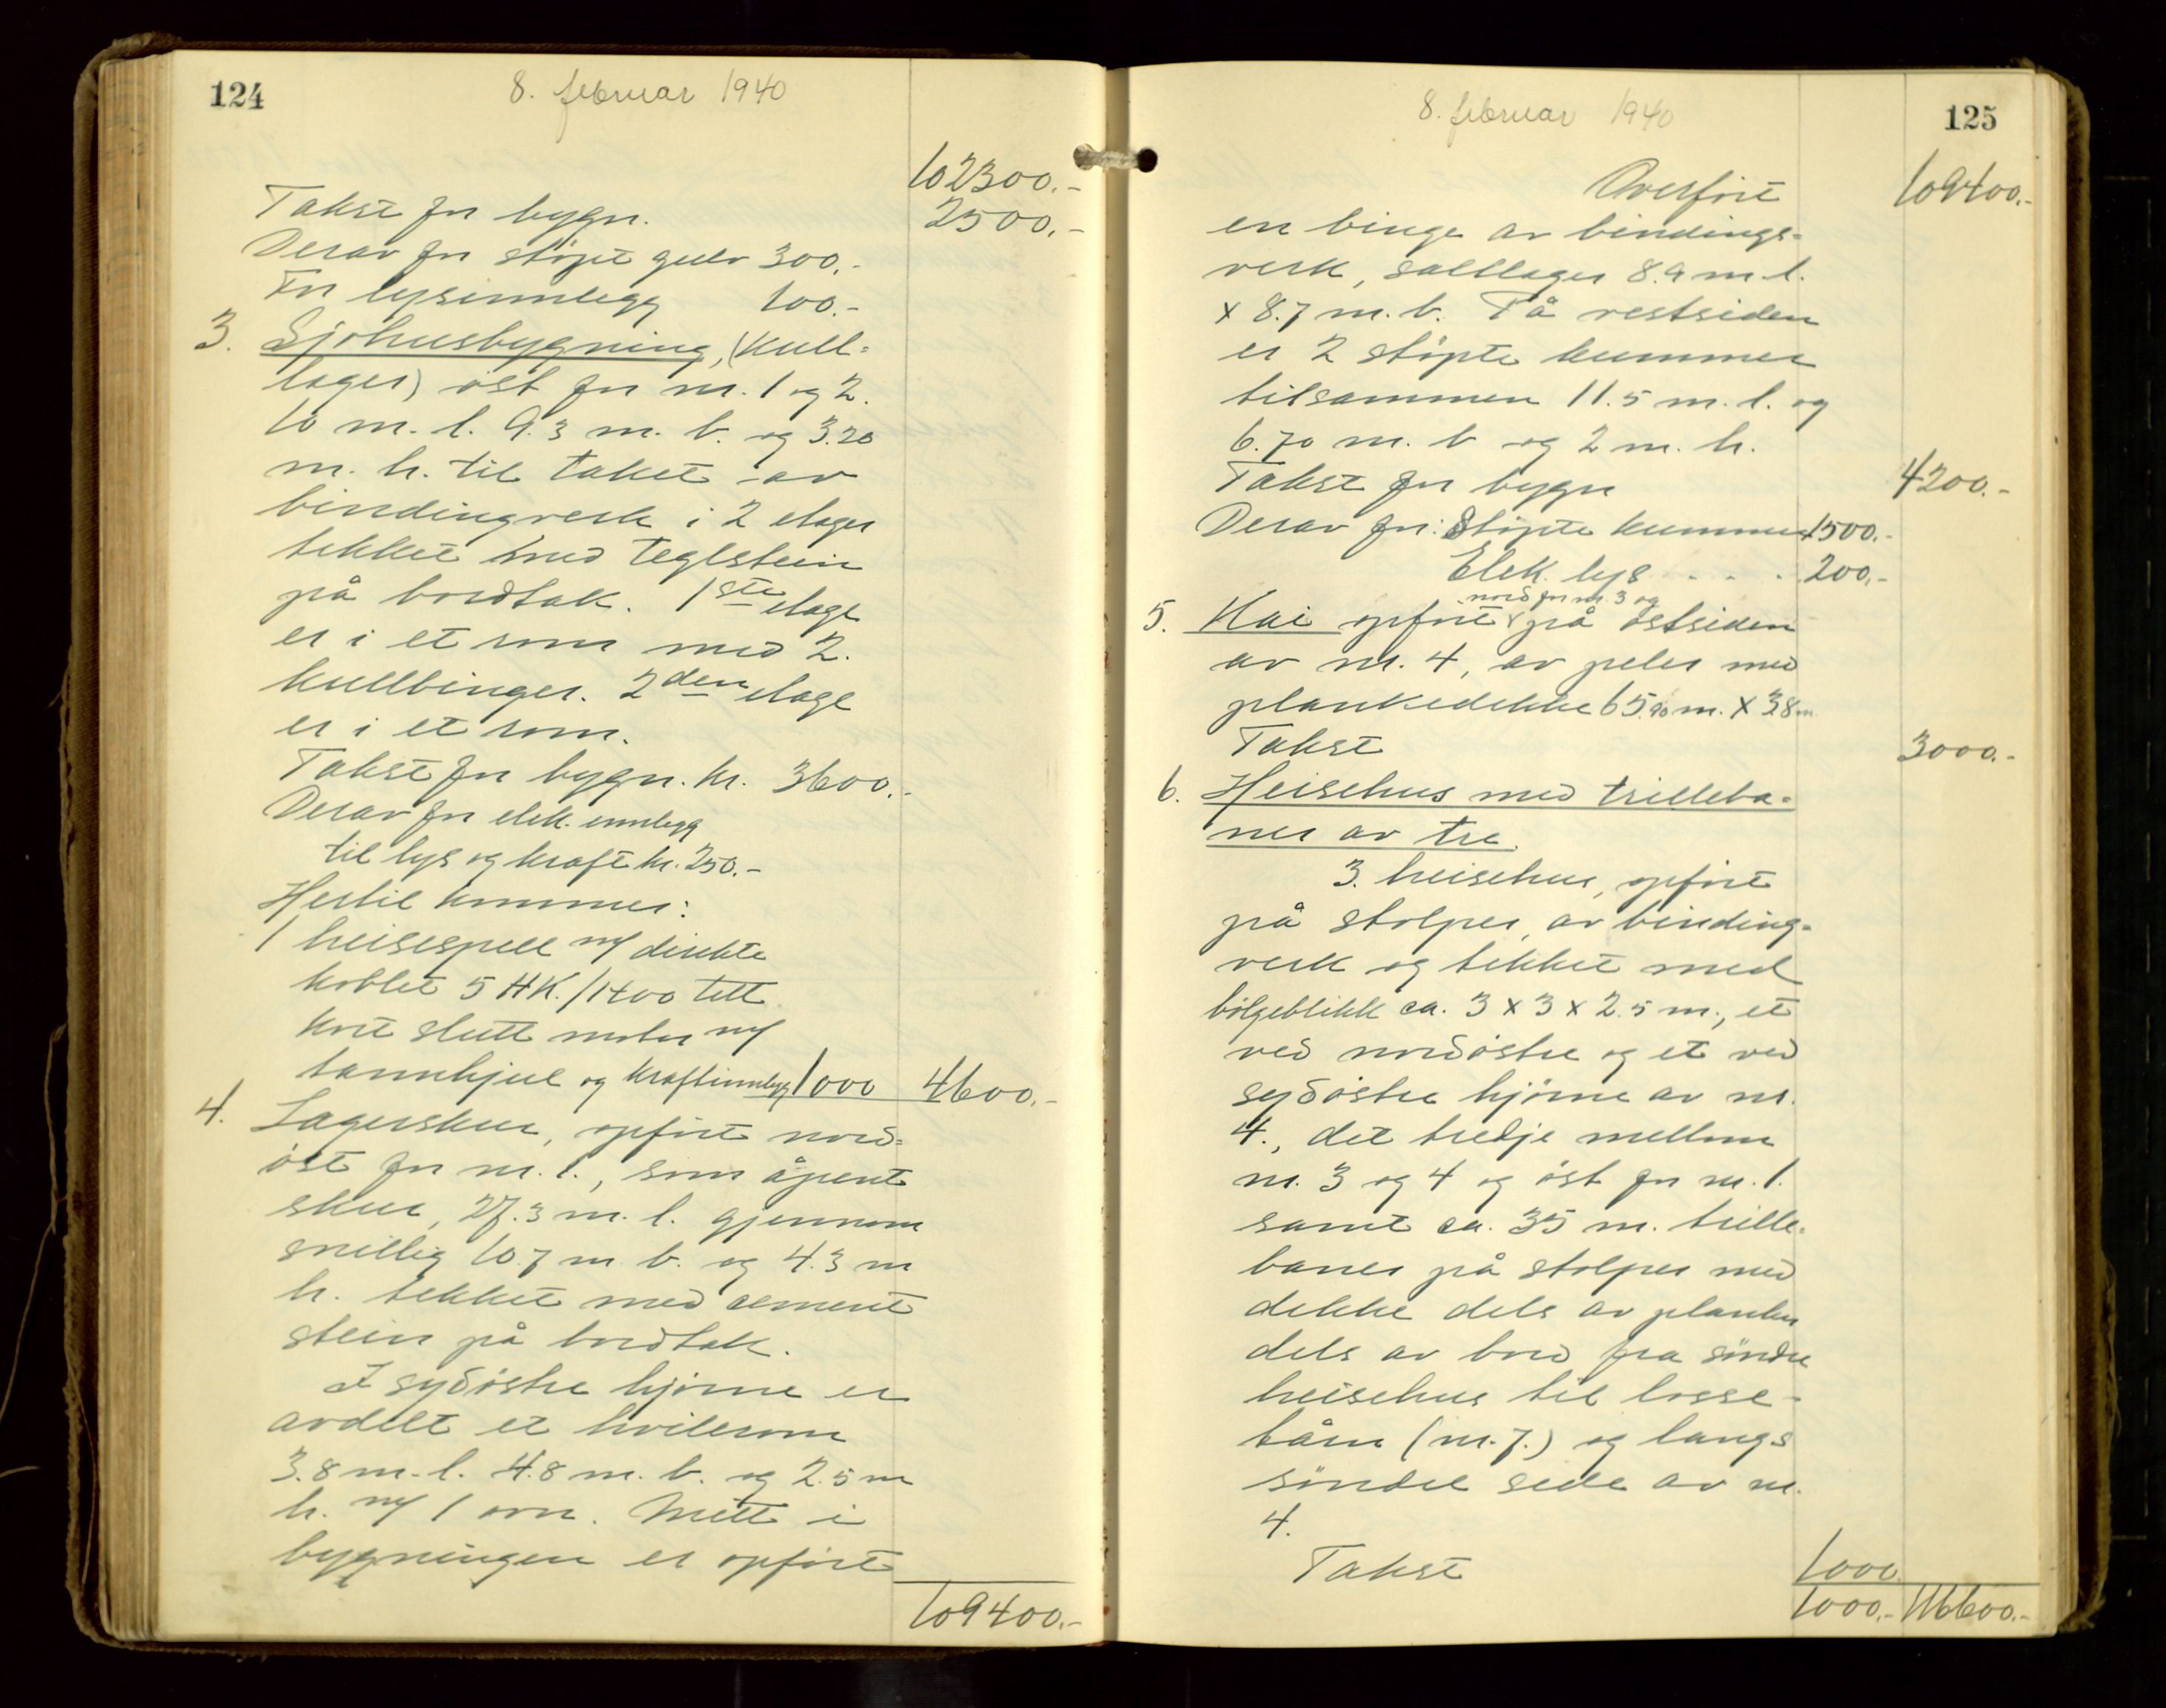 124
8. februar 1940
102300.-
Takst for bygn. 2500.-
Derav for støpt gulv 300.-
For lysinnlegg 100.-
3. Sjøhusbygning, (kull-
lager) øst for nr. 1 og 2.
10 m. l. 9.3 m. b. og 3.20
m. h. til taket av
bindingverk i 2 etager
tekket med teglstein
på bordtak. 1ste etage
er i et rom med 2.
kullbinger. 2den etage
er i et rom.
Takst for bygn. kr. 3600.-
Derav for elek. innlegg
til lys og kraft kr. 250.-
Hertil kommer:
1 heisespell m/ direkte
koblet 5 HK./1400 tett
kort slutt motor m/
tannhjul og kraftinnlegg 1000 4600.-
4. Lagerskur, opført nord-
øst for nr. 1., som åpent
skur, 27.3 m. l. gjennom
snittlig 10.7 m. b. og 4.3 m
h. tekket med cement
stein på bordtak.
I sydøstre hjørne er
avdelt et hvilerom
3.8 m. l. 4.8 m. b. og 2.5 m
h. m/ 1 ovn. Mitt i
bygningen er opført
109400.-
8. februar 1940
125
Overført 109400.-
en binge av bindings-
verk, saltlager 8.9 m. l.
x 8.7 m. b. På vestsiden
er 2 støpte kummer
tilsammen 11.5 m. l. og
6.70 m. b og 2 m. h.
Takst for bygn 4200.-
Derav for: Støpte kummer 1500.-
Elek. lys . . . 200.-
nord for nr. 3 og
5. Kai opført på østsiden
av nr. 4, av peler med
plankedekke 65.90 m. x 3.8 m
Takst 3000.-
6. Heisehus med trilleba-
ner av tre.
3. heisehus, opført
på stolper, av binding-
verk og tekket med
bølgeblikk ca. 3 x 3 x 2.5 m., et
ved nordøstre og et ved
sydøstre hjørne av nr.
4., det tredje mellom
nr. 3 og 4 og øst for nr. 1.
samt ca. 35 m. trille-
baner på stolper med
dekke dels av planker
dels av bord fra søndre
heisehus til losse-
tårn (nr. 7.) og langs
søndre side av nr.
4.
Takst 1000
1000.- 116600.-